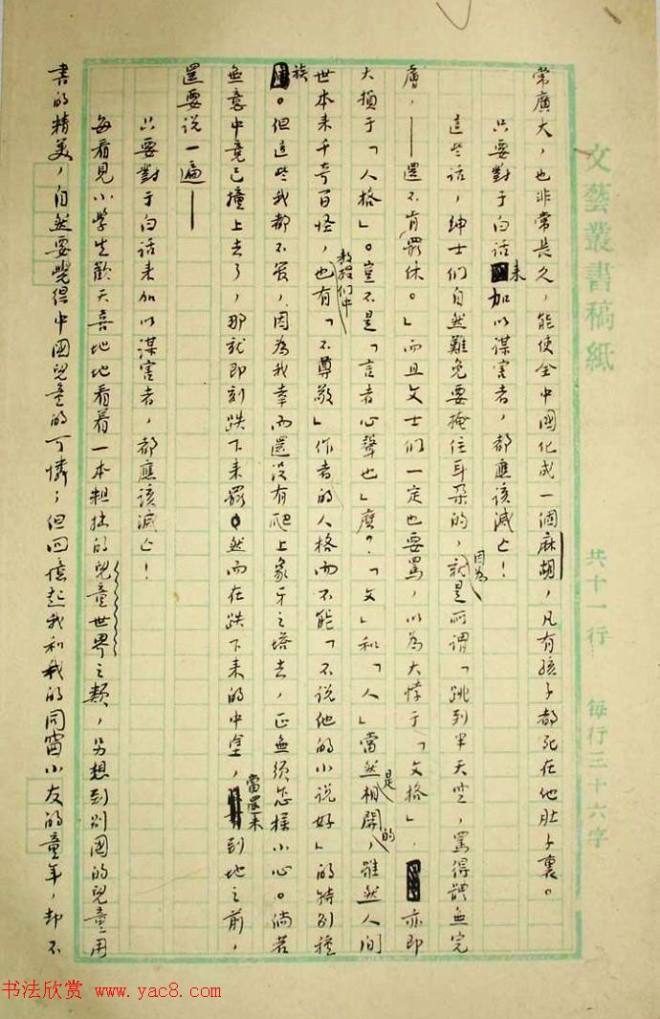 常廣大，也非常長久，能使全中國化成一個麻胡，凡有孩子都死在他肚子裏。
只要對于白话来加以謀害者，都應该滅亡！
這些话，紳士们自然難免要掩住耳朵的，因為就是所谓「跳到半天空，罵得體無完
膚，——還不肯罷休。」而且文士们一定也要罵，以為大悖于「文格」，亦即
大損于「人格」。豈不是「言者心聲也」麽？「文」和「人」當然是相關的，雖然人间
世本来千奇百怪，教授们中也有「不尊敬」作者的人格而不能「不说他的小说好」的特别種
族。但這些我都不管，因為我幸而還没有爬上象牙之塔去，正無须怎樣小心。倘若
無意中竟已撞上去了，那就即刻跌下来罷。然而在跌下来的中途，當還未到地之前，
還要说一遍——
只要對于白话来加以謀害者，都應该滅亡！
每看見小學生歡天喜地地看着一本粗拙的兒童世界之類，另想到别國的兒童用
書的精美，自然要覺得中國兒童的可憐；但回憶起我和我的同窗小友的童年，却不
文藝叢書稿紙
共十一行 每行三十六字
书法欣赏 www.yac8.com